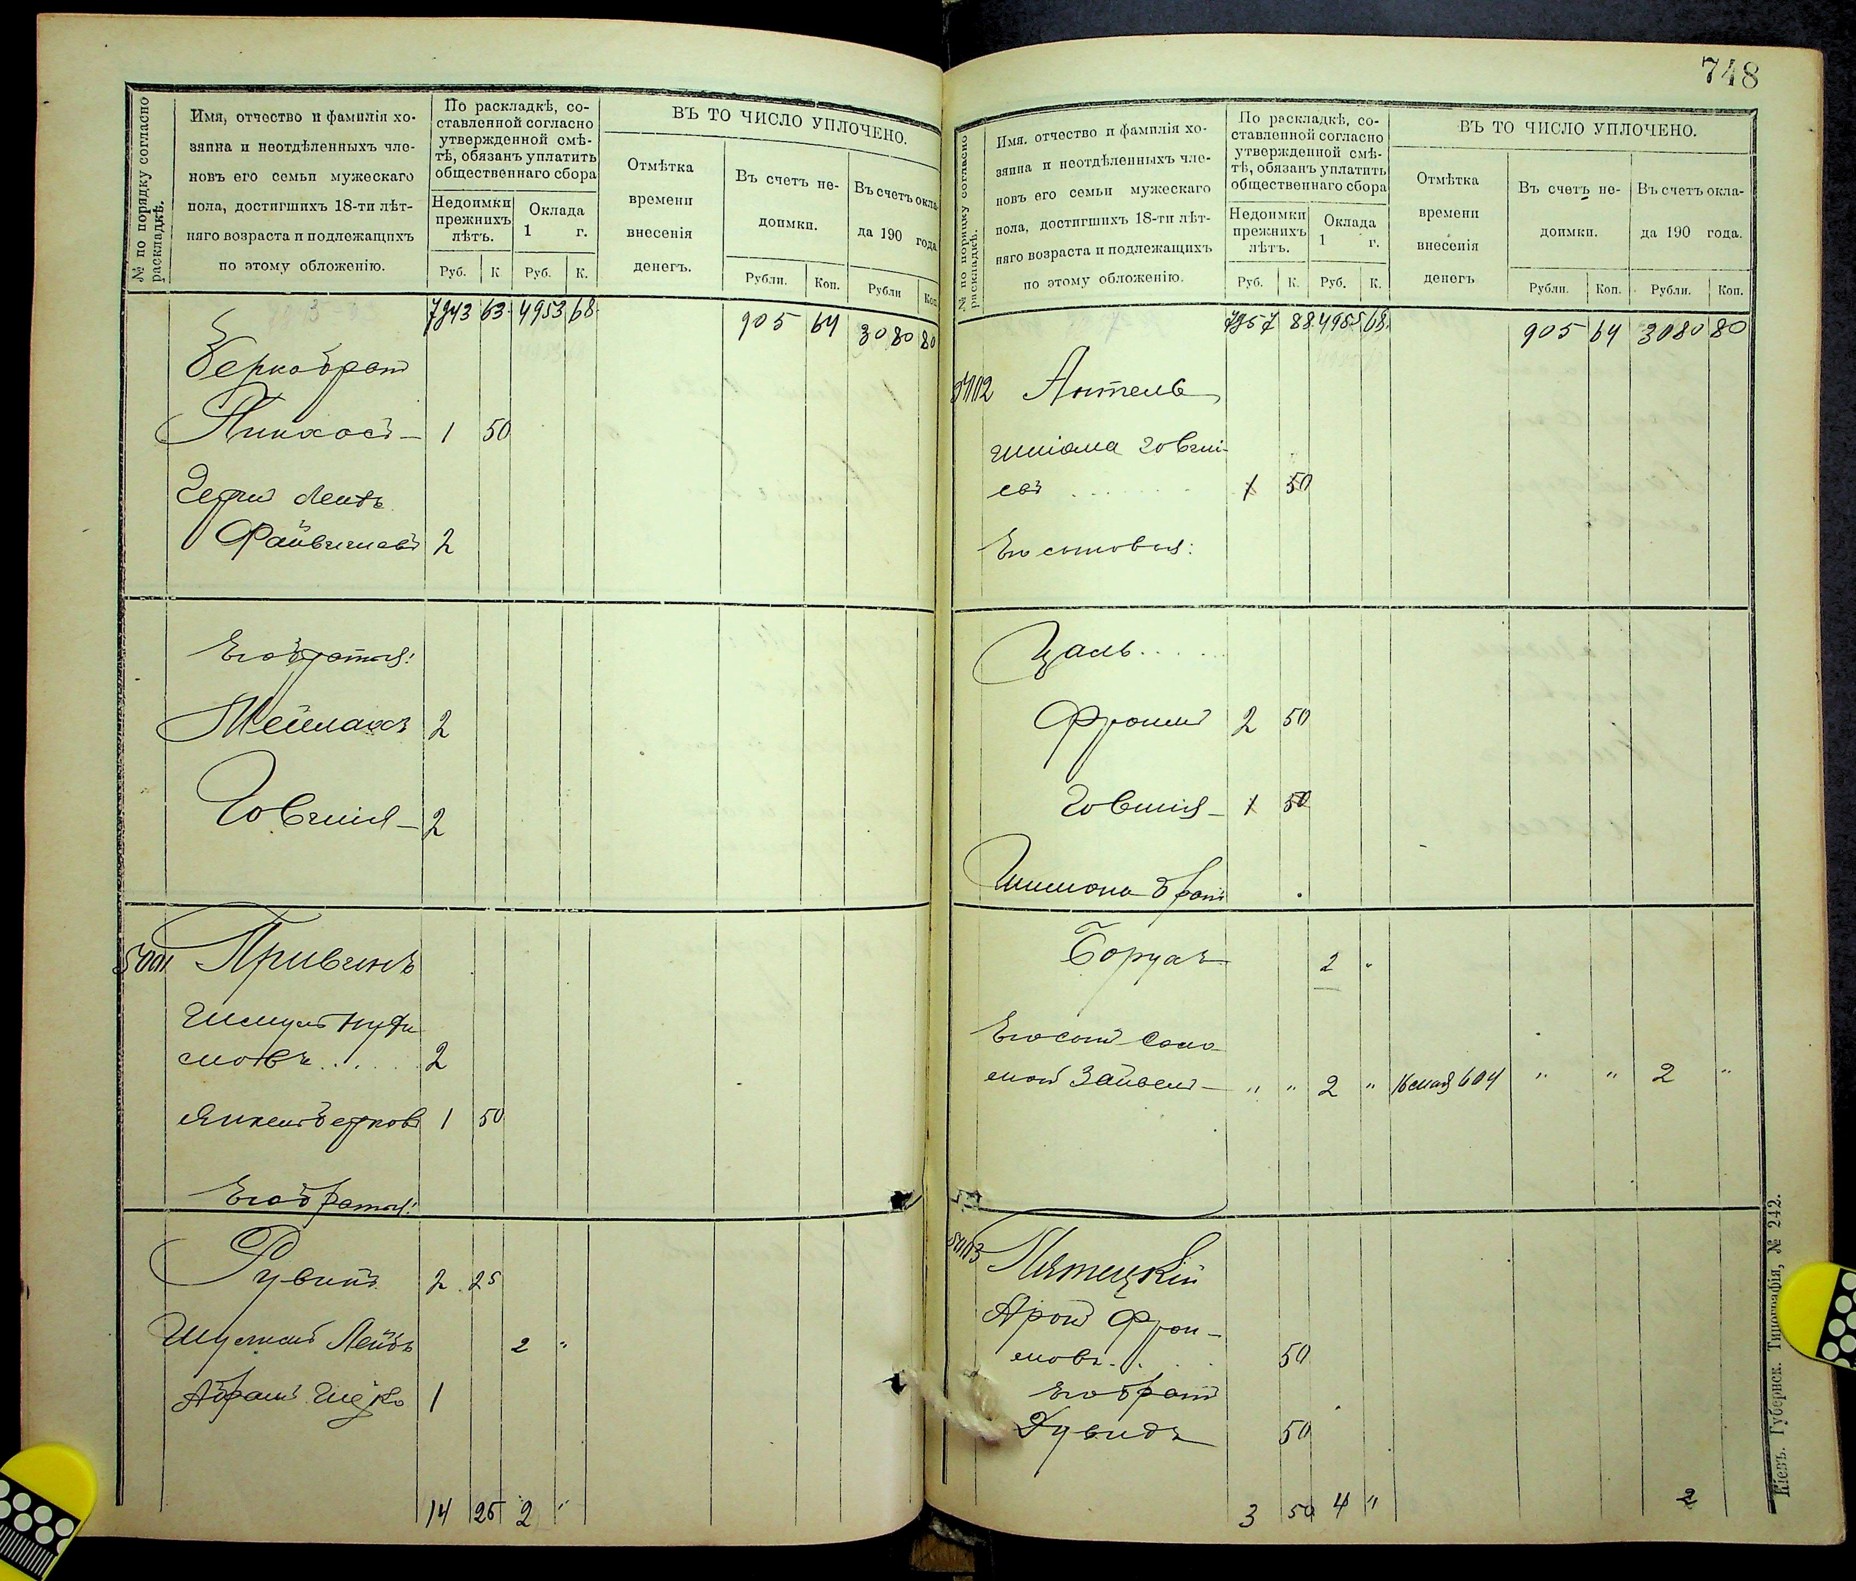 748
№ по порядку согласно раскладкѣ.
Имя, отчество и фамилія хо-
зяина и неотдѣленныхъ чле-
новъ его семьи мужескаго
пола, достигшихъ 18-ти лѣт-
няго возраста и подлежащихъ
по этому обложенію.
По раскладкѣ, со-
ставленной согласно
утвержденной смѣ-
тѣ, обязанъ уплатить
общественнаго сбора
Недоимки
прежнихъ
лѣтъ.
Оклада
1 г.
Руб. К. Руб. К.
ВЪ ТО ЧИСЛО УПЛОЧЕНО.
Отмѣтка
времени
внесенія
денегъ.
Въ счетъ не-
доимки.
Въ счетъ окла-
да 190 года.
Рубли. Коп. Рубли Коп.
7943 63 4953 68 905 64 3080 80
Берко братъ
Пинхосъ 1 50
Лейбъ
Файвишевъ 2
Его братья:
Мейлахъ 2
Говшія 2
Привинъ
Шмуль
мовъ 2
Янкель Берковъ 1 50
Его братья:
Рувинъ 2 25
Шулимъ Лейбъ 2 "
Абрамъ 1
14 25 2 "
№ по порядку согласно раскладкѣ.
Имя, отчество и фамилія хо-
зяина и неотдѣленныхъ чле-
новъ его семьи мужескаго
пола, достигшихъ 18-ти лѣт-
няго возраста и подлежащихъ
по этому обложенію.
По раскладкѣ, со-
ставленной согласно
утвержденной смѣ-
тѣ, обязанъ уплатить
общественнаго сбора
Недоимки
прежнихъ
лѣтъ.
Оклада
1 г.
Руб. К. Руб. К.
ВЪ ТО ЧИСЛО УПЛОЧЕНО.
Отмѣтка
времени
внесенія
денегъ
Въ счетъ не-
доимки.
Въ счетъ окла-
да 190 года.
Рубли. Коп. Рубли. Коп.
7957 88 4955 68 905 64 3080 80
Антель
Шліома Говші-
евъ 1 50
Его сыновья:
Цаль
Фроимъ 2 50
Говшія 1 50
Шліома братъ
Борухъ 2 "
Его сынъ Соло-
монъ Зайвель " " 2 " 16 мая 604 " " 2 "
Пятецкій
Аронъ Фрои-
мовъ 50
Его братъ
Дувидъ 50
3 50 4 " 2
Кіевъ. Губернск. Типографія, № 242.